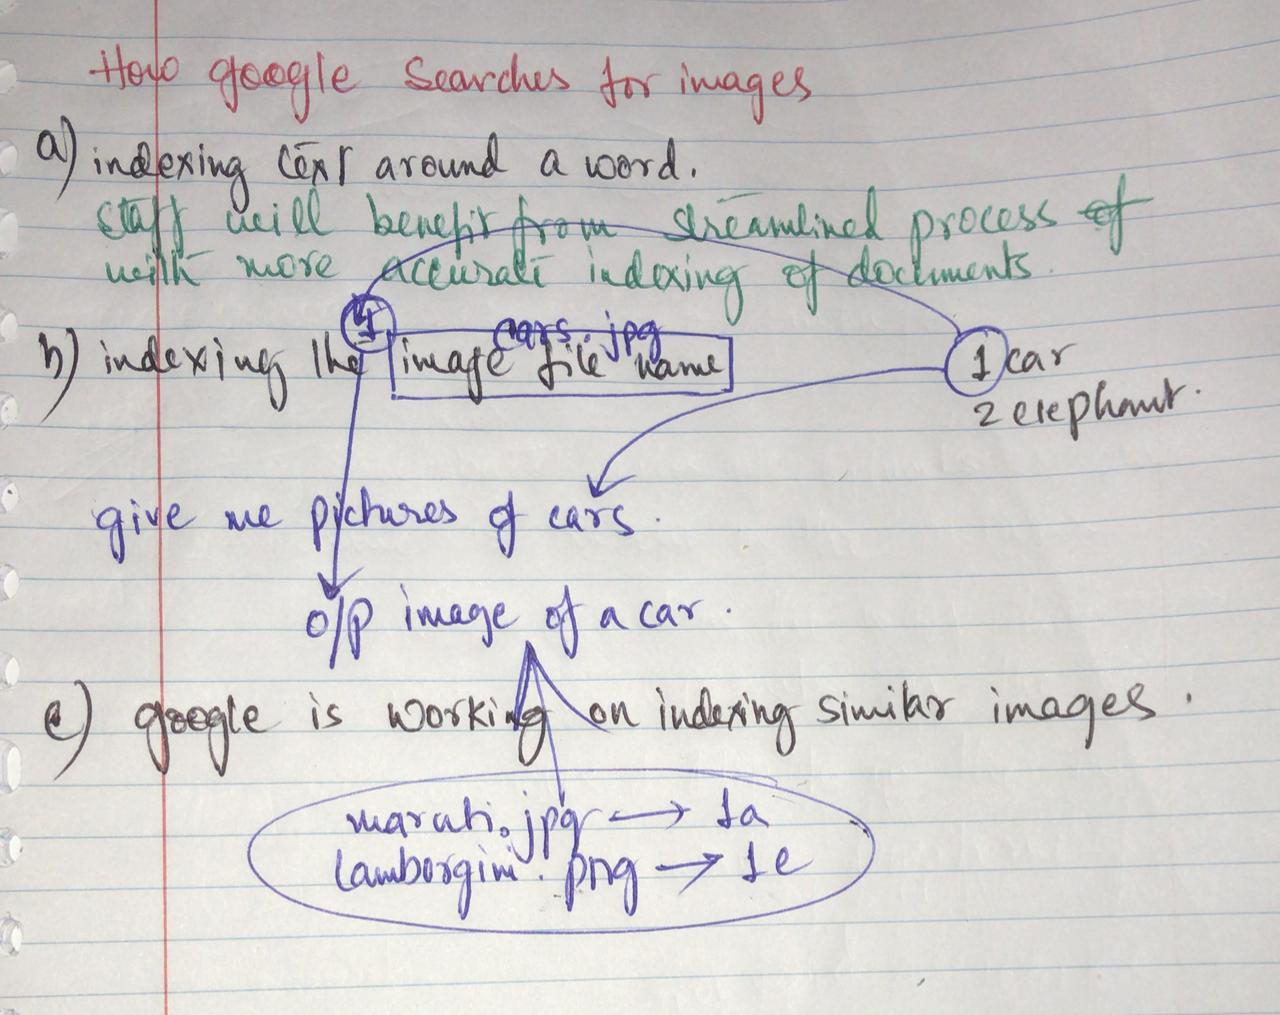 How google searches for images
a) indexing text around a word.
staff will benefit from streamlined process of
with more accurate indexing of documents.
1
cars.jpg
b) indexing the image file name
1 car
2 elephant.
give me pictures of cars.
o/p image of a car.
c) google is working on indexing similar images.
maruti.jpg → 1a
lamborgini.png → 1e